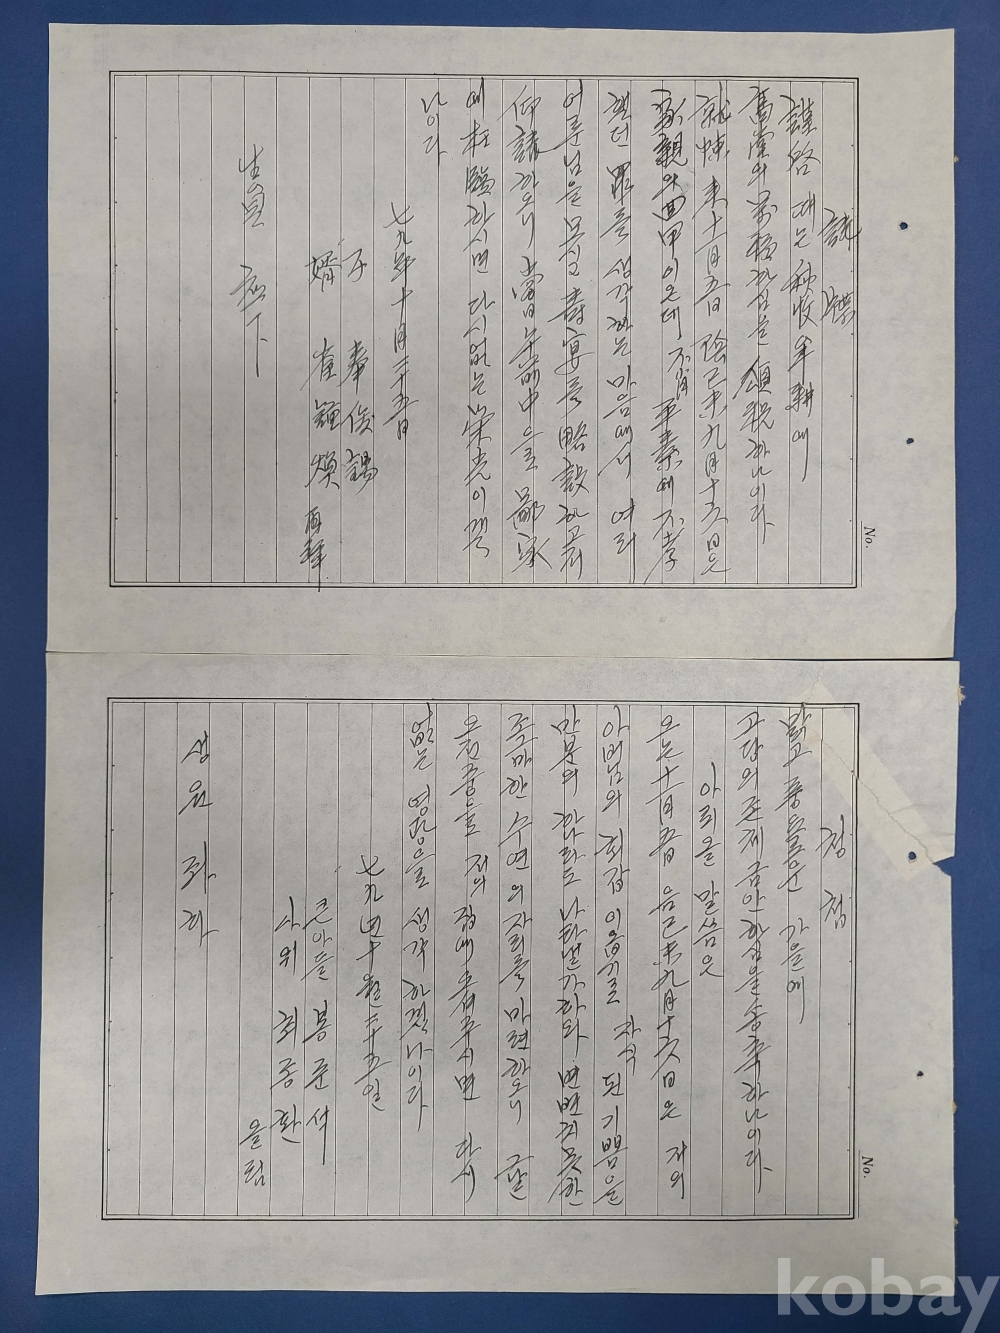 請牒
謹啓 때는 秋收牟耕에
高堂의 萬福하심을 頌祝하나이다
就悚 來十一月五日 陰己未九月十六日은
家親의 回甲이온데 不肖 平素에 不孝
했던 罪를 생각하는 마음에서 여러
어른님을 모실 壽宴을 略設하고서
仰請하오니 當日 午前中으로 鄙家
에 枉臨하시면 다시없는 榮光이겠
나이다
七九年十月二十五日
子 奉俊錫
婿 崔鍾煥 再拜
生員 座下
No.
청첩
맑고 풍요로운 가을에
고당의 존체 금안하심을 송축하나이다
아뢰올 말씀은
오는 十一月 五日 음己未九月十六日은 저의
아버님의 회갑이옵기로 자식된 기쁨을
만분의 하나라도 나타낼가하와 변변치못한
조그마한 수연의 자리를 마련하오니 그날
오전중으로 저의 집에 오셔주시면 다시
없는 영광으로 생각하겠나이다
七九年十월二十五일
큰아들 봉준석
사위 최종환
올림
생원 좌하
No.
kobay